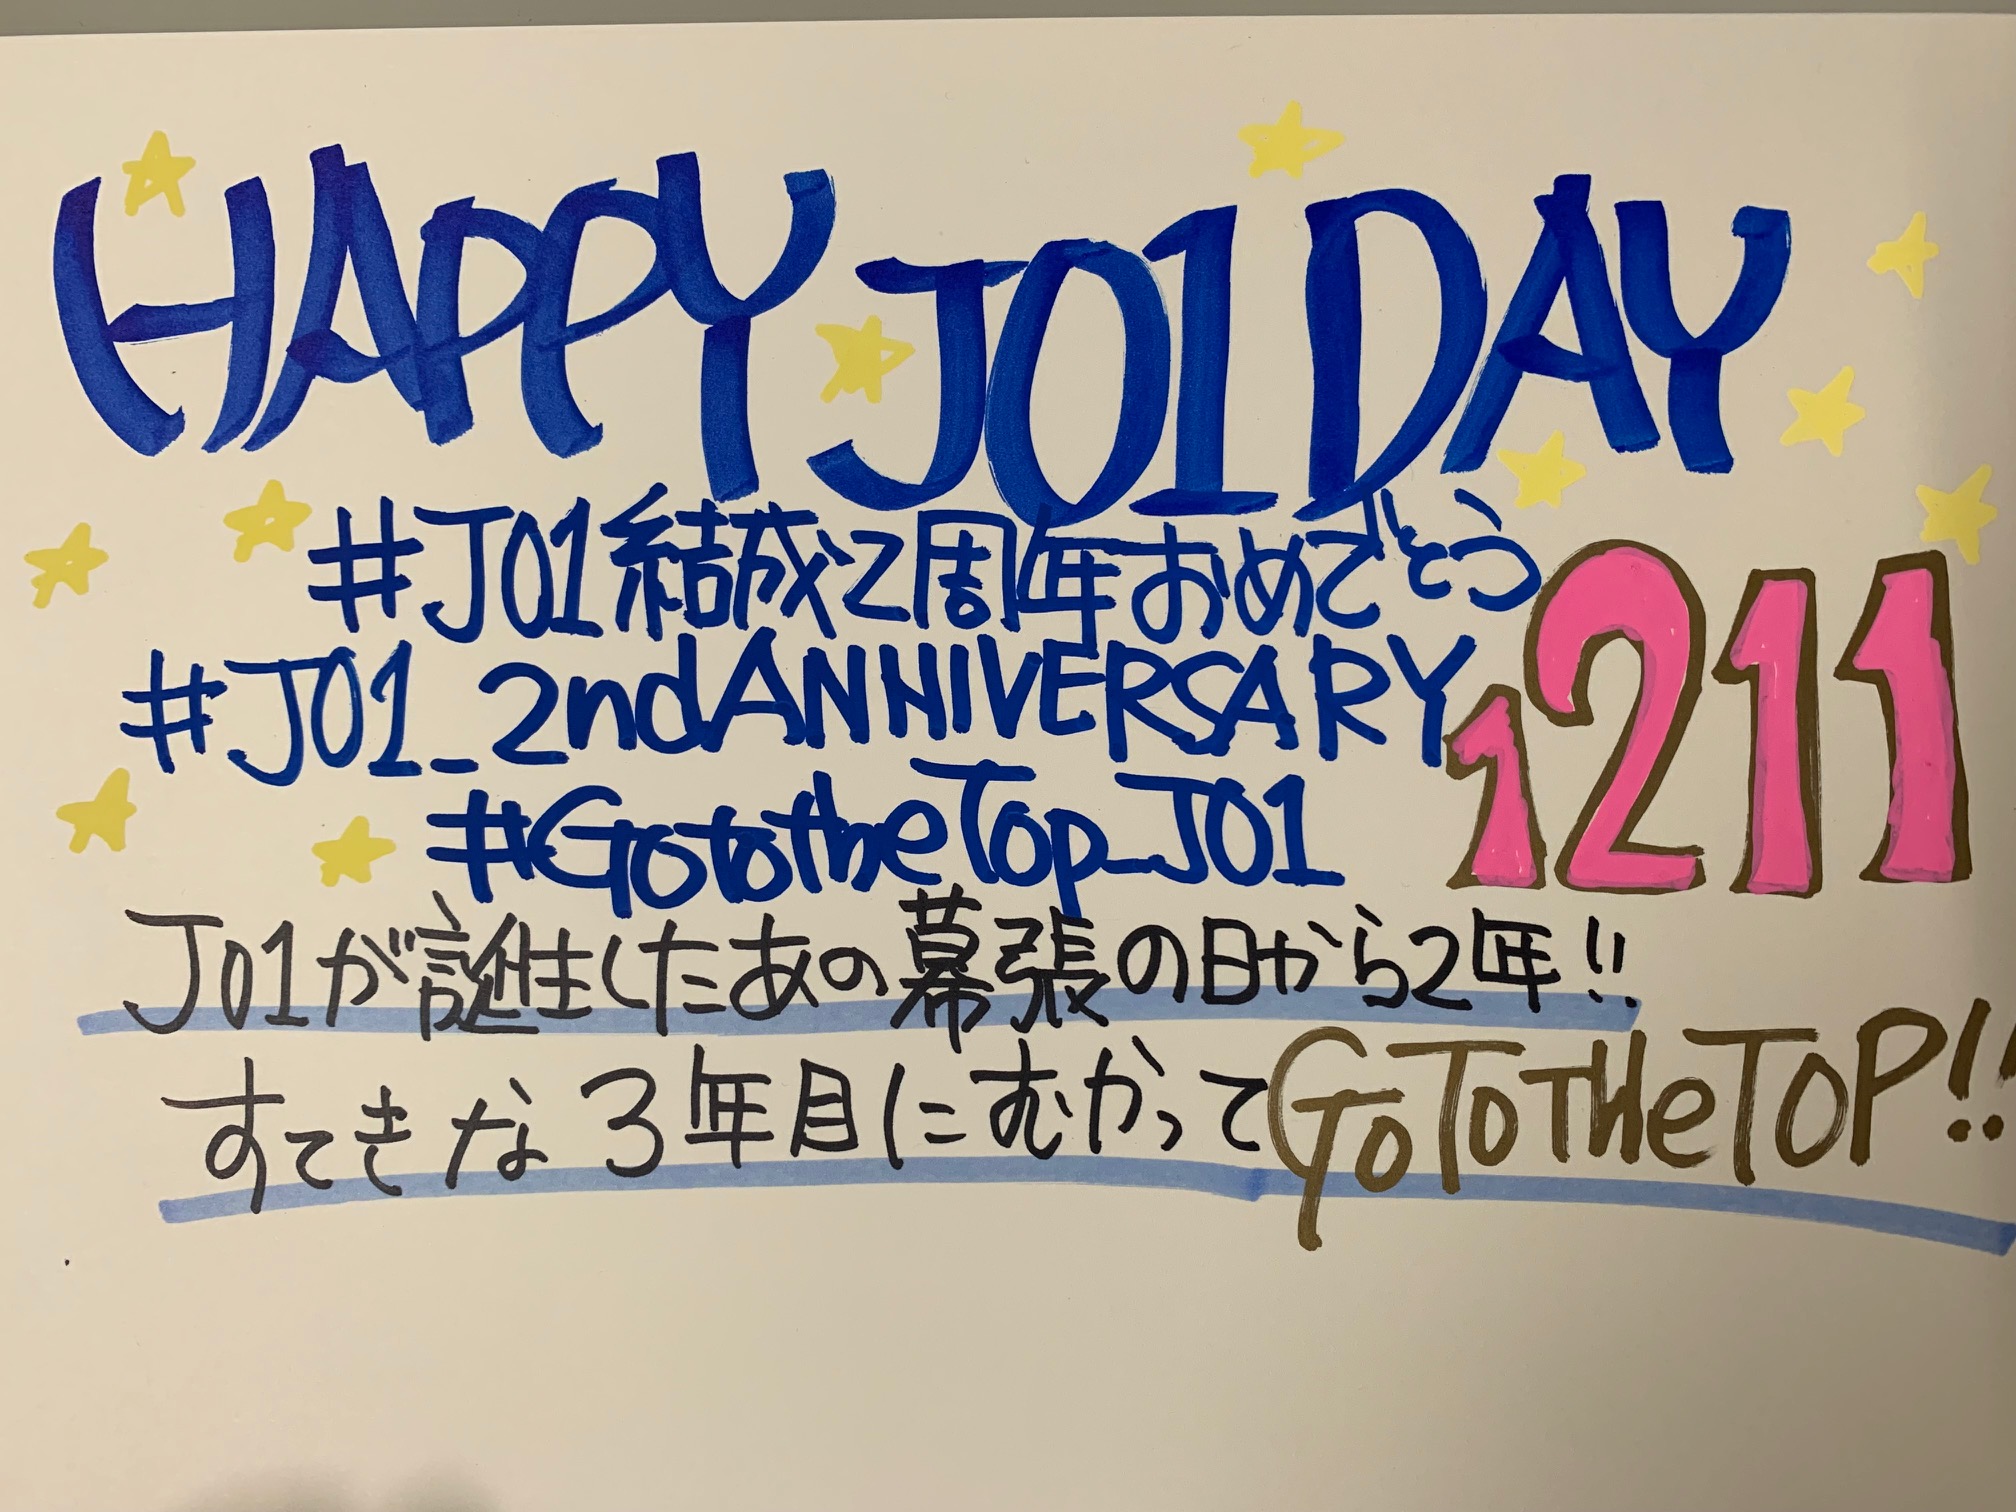 HAPPY JO1DAY
#JO1結成2周年おめでとう
#JO1_2ndANNIVERSARY
1211
#GototheTop_JO1
JO1が誕生したあの幕張の日から2年!!
すてきな3年目にむかってGoTotheTOP!!